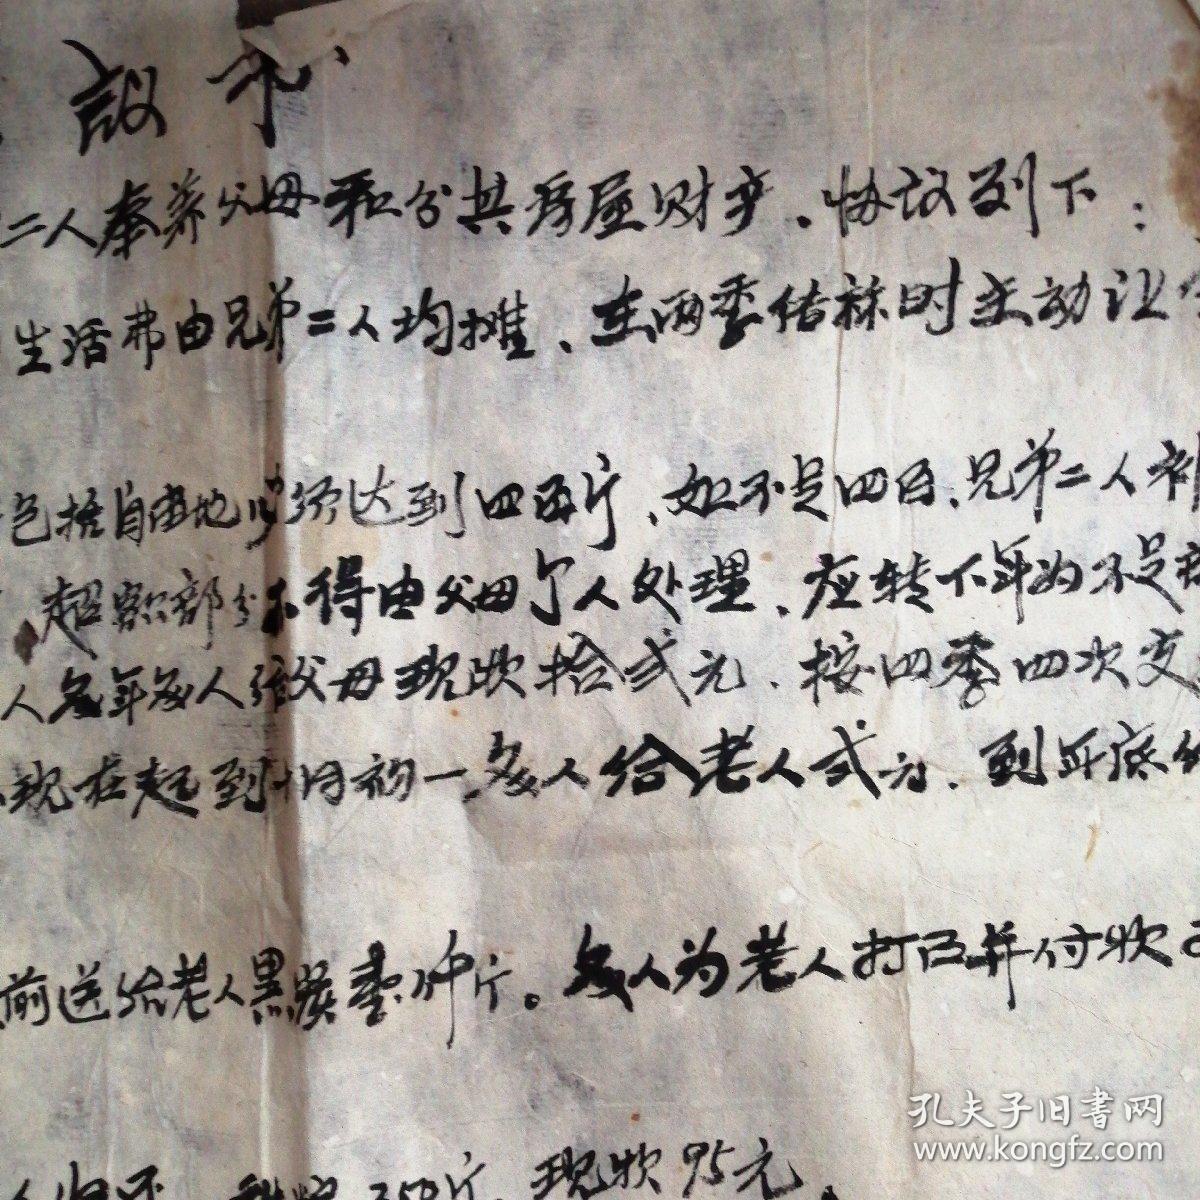 议书
二人奉养父母和分共房屋财产、协议列下：
生活弗由兄弟二人均摊、在两季结算时主动让
包括自由地必须达到四百斤、如不足四百、兄弟二人补
超额部分不得由父母个人处理、应转下年为不足
人每年每人给父母现款拾弍元、按四季四次交
现在起到十月初一每人给老人弍元、到年底
前送给老人黑炭壹仟斤。每人为老人打己并付款
350斤、现款95元、
孔夫子旧書网
www.kongfz.com